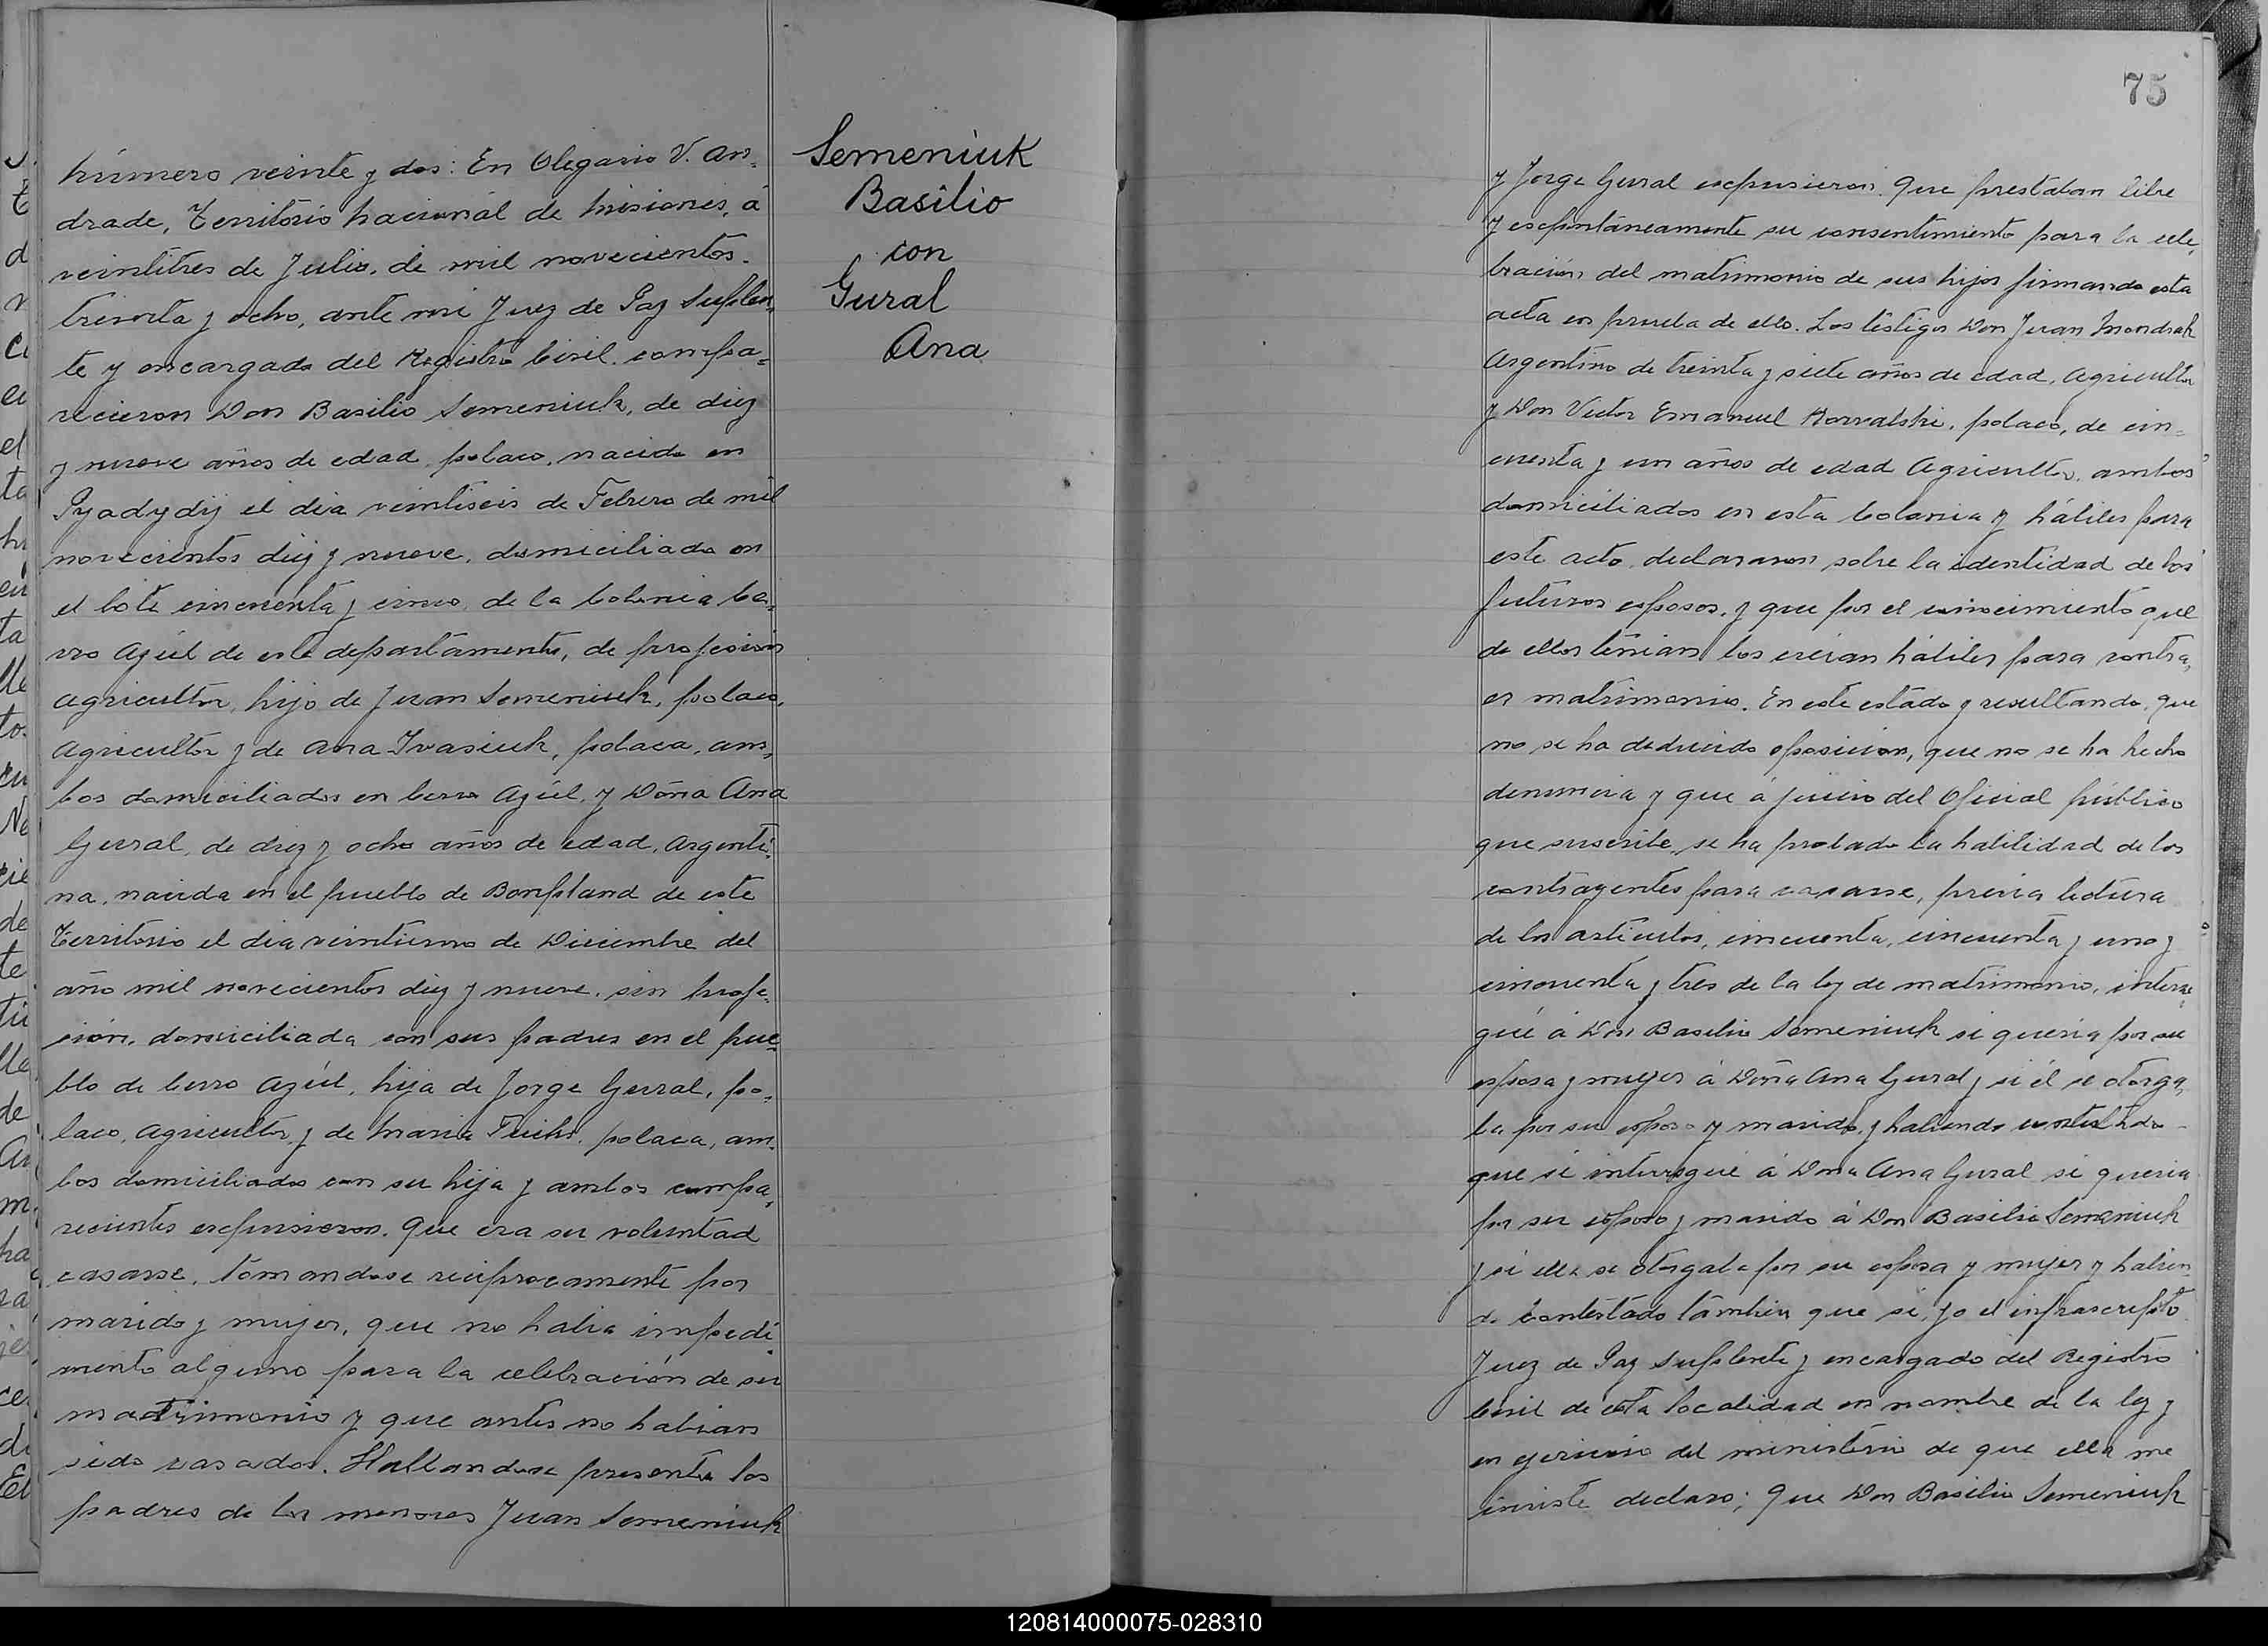 Número veinte y dos: En Olegario V. An-
drade, Territorio Nacional de Misiones, á
veintitres de Julio, de mil novecientos
treinta y ocho, ante mi Juez de Paz Suplen-
te y encargado del Registro Civil compa-
recieron Don Basilio Semeniuk, de diez
y nueve años de edad, polaco, nacido en
el dia veintiseis de Febrero de mil
novecientos diez y nueve, domiciliado en
el lote cincuenta y cinco de la Colonia Ce-
rro Azúl de este departamento, de profesion
Agricultor, hijo de Juan Semeniuk, polaco,
Agricultor y de Ana Ivasiuk, polaca, am-
bos domiciliados en Cerro Azúl, y Doña Ana
Gural, de diez y ocho años de edad, Argenti-
na, nacida en el pueblo de Bonpland de este
Territorio el dia veintiuno de Diciembre del
año mil novecientos diez y nueve, sin profe-
sión, domiciliada con sus padres en el pue-
blo de Cerro Azúl, hija de Jorge Gural, po-
laco, Agricultor y de Maria polaca, am-
bos domiciliados con su hija y ambos compa-
recientes expusieron. Que era su voluntad
casarse, tomandose reciprocamente por
marido y mujer, que no habia impedi-
mento alguno para la celebración de su
matrimonio y que antes no habian
sido casados. Hallandose presente los
padres de los menores Juan Semeniuk
Semeniuk
Basilio
con
Gural
Ana
75
y Jorge Gural expusieron. Que prestaban libre
y espontáneamente su consentimiento para la cele-
bración del matrimonio de sus hijos firmando esta
acta en prueba de ello. Los testigos Don Juan
Argentino de treinta y siete años de edad, Agricultor
y Don Victor Emanuel Kowalski, polaco, de cin-
cuenta y un años de edad Agricultor, ambos
domiciliados en esta Colonia y hábiles para
este acto, declararon sobre la identidad de los
futuros esposos, y que por el conocimiento que
de ellos tenian los creian hábiles para contra-
er matrimonio. En este estado y resultando, que
no se ha deducido oposicion, que no se ha hecho
denuncia y que á juicio del Oficial público
que suscribe, se ha probado la habilidad de los
contrayentes para casarse, previa lectura
de los articulos, cincuenta, cincuenta y uno y
cincuenta y tres de la ley de matrimonio, interro-
gué á Don Basilio Semeniuk si queria por su
esposa y mujer á Doña Ana Gural y si él se otorga-
ba por su esposo y marido, y habiendo contestado
que si interrogué á Doña Ana Gural si queria
por su esposo y marido á Don Basilio Semeniuk
y si ella se otorgaba por su esposa y mujer y habien-
do contestado tambien que si, yo el infrascripto
Juez de Paz Suplente y encargado del Registro
Civil de esta localidad en nombre de la ley y
en ejercicio del ministerio de que ella me
inviste declaro; Que Don Basilio Semeniuk
120814000075-028310